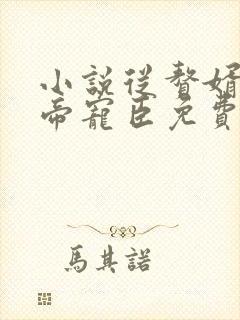 小說從贅婿
帝寵臣免費
馬其諾